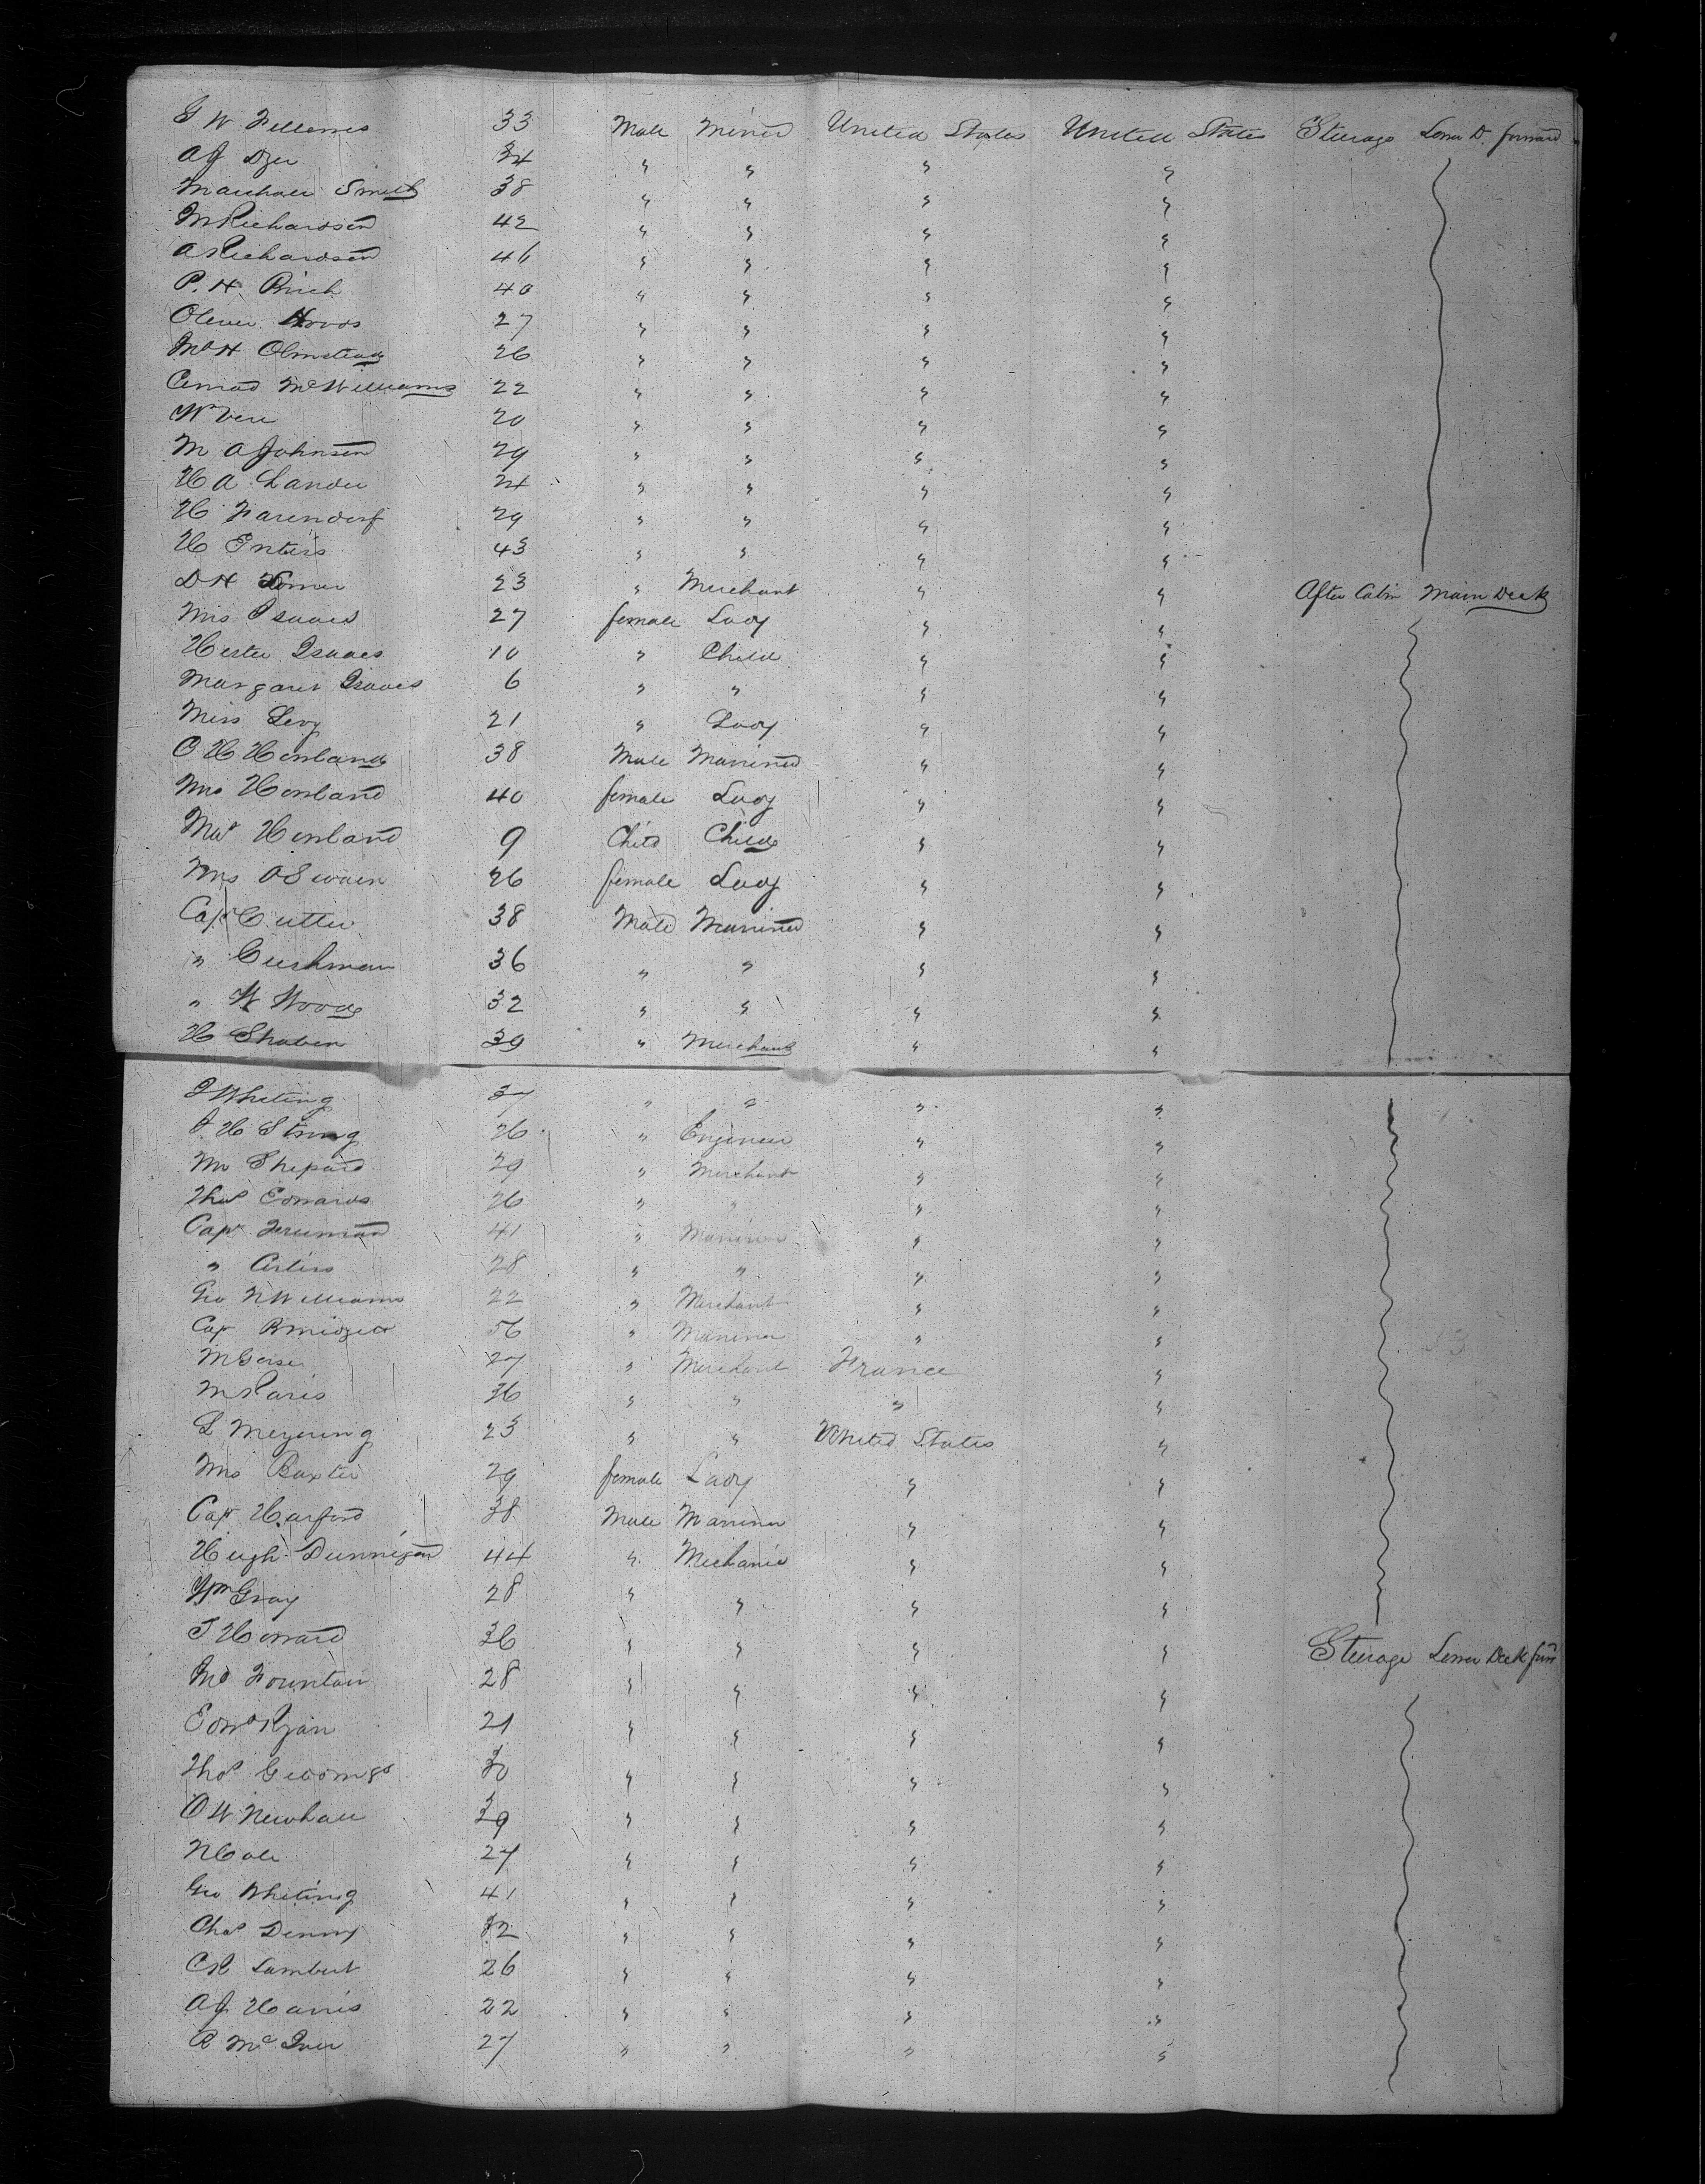 G W Fellows 33 Male Miner United States United States Steerage Lower D. forward
A J Dyer 34 " " " "
Marshall Smith 38 " " " "
M Richardson 42 " " " "
A Richardson 46 " " " "
P. H. Birch 40 " " " "
Oliver Woods 27 " " " "
Md H Olmstead 26 " " " "
Conrad McWilliams 22 " " " "
W Vere 20 " " " "
M A Johnson 29 " " " "
H A Lander 24 " " " "
H Farendorf 29 " " " "
H Enters 43 " " " "
D H 23 " Merchant " " After Cabin Main Deck
Mrs Isaacs 27 female Lady " "
Hester Isaacs 10 " Child " "
Margaret Isaacs 6 " " " "
Miss Levy 21 " Lady " "
O H Howland 38 Male Mariner " "
Mrs Howland 40 female Lady " "
Howland 9 Child Child " "
Mrs O Swain 26 female Lady " "
Capt Cutter 38 Male Mariner " "
" Cushman 36 " " " "
" W Wood 32 " " " "
H Shaben 39 " Merchant " "
J Whiting 37 " " " "
J. H Strong 26 " Engineer " "
Mr Shepard 29 " Merchant " "
Thos Edwards 26 " " " "
Capt Freeman 41 " Mariner " "
" 28 " " " "
Geo N Williams 22 " Merchant " "
Cap 56 " Mariner " "
M 27 " Merchant France "
M Paris 36 " " " "
L Meyering 23 " " United States "
Mrs Baxter 29 female Lady " "
Cap Harford 38 Male Mariner " "
Hugh Dunnigan 44 " Mechanic " "
Wm Gray 28 " " " "
T Howard 36 " " " " Steerage Lower Deck forw
Md Fountain 28 " " " "
Edwd Ryan 21 " " " "
Thos 30 " " " "
O W Newhall 39 " " " "
N Cole 27 " " " "
Geo Whiting 41 " " " "
Chas Denny 32 " " " "
C R Lambert 26 " " " "
A J Harris 22 " " " "
R McIver 27 " " " "